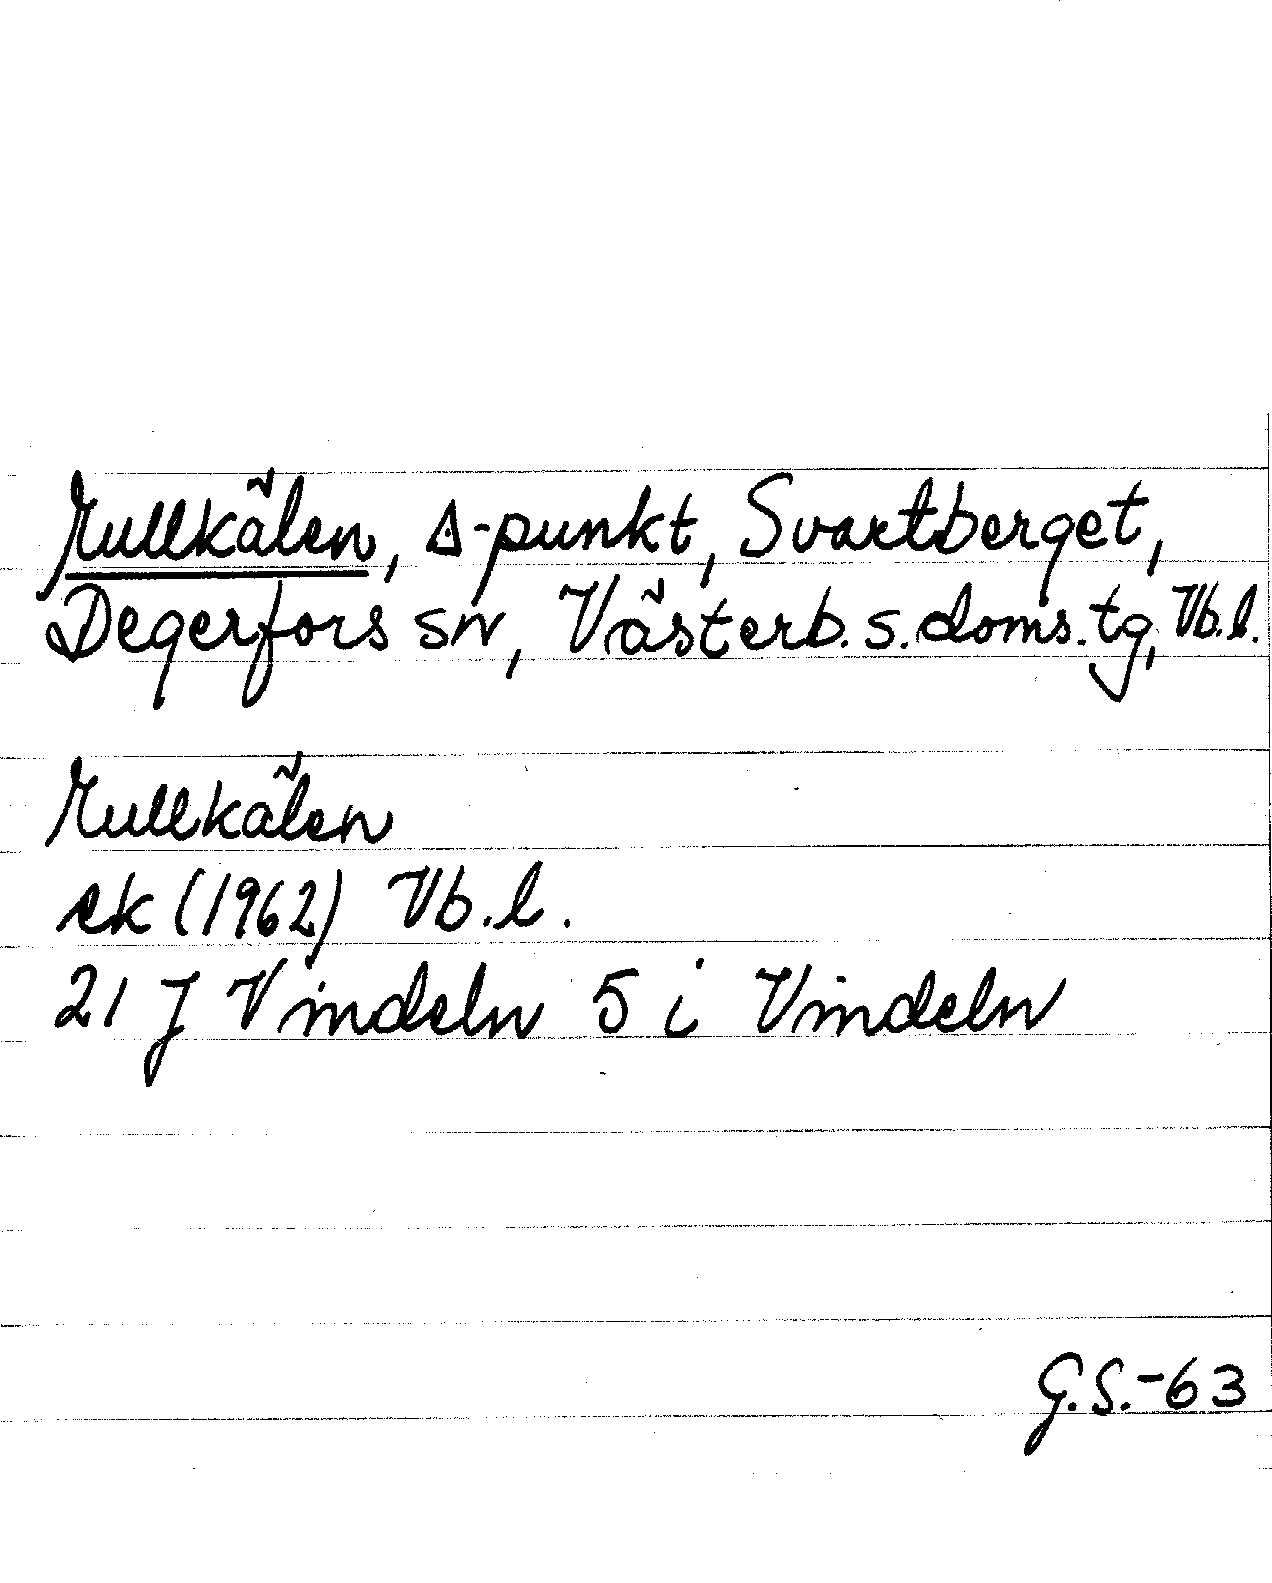 Kullkälen, ∆-punkt, Svartberget,
Degerfors sn, Västerb. s. doms. tg, Vb. l.
Kullkälen
ek (1962) Vb. l.
21 J Vindeln 5 i Vindeln
G.S.-63